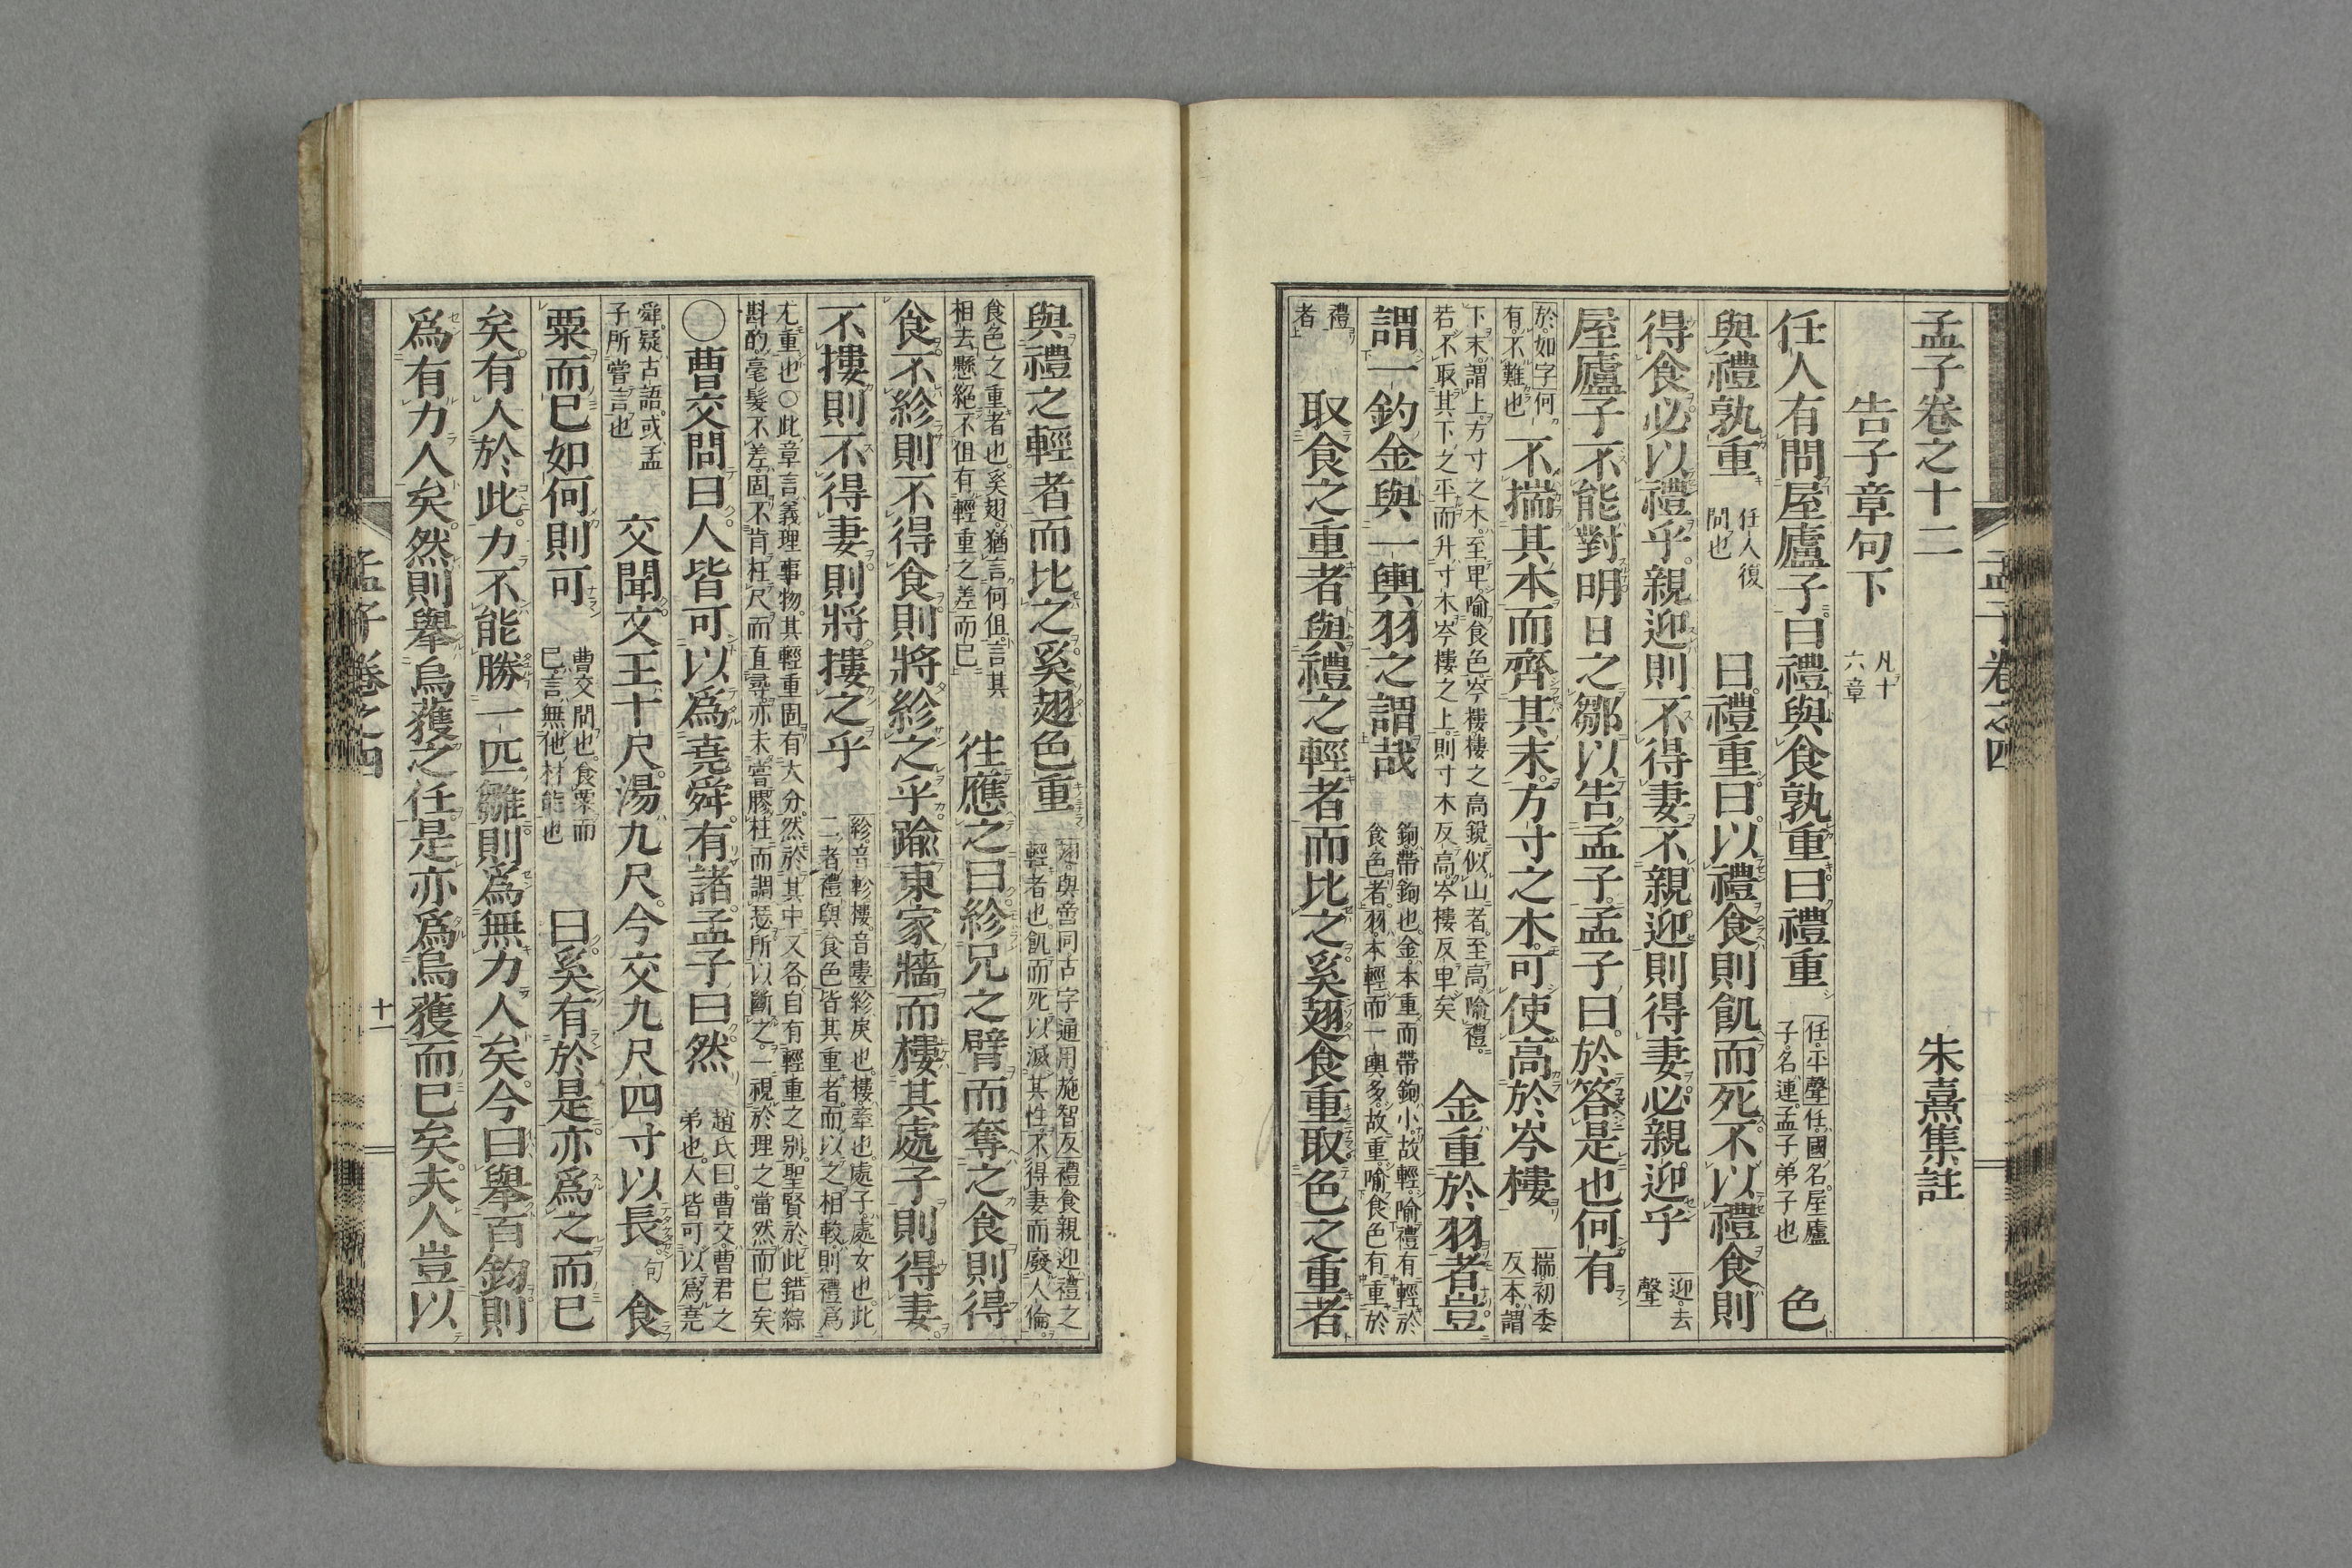 孟子卷之四
孟子卷之十二　朱熹集註
告子章句下　凡十六章
任人有問屋廬子曰禮與食孰重曰禮重　任平聲任國名屋廬子名連孟子弟子也　色
與禮孰重　任人復問也　曰禮重曰以禮食則飢而死不以禮食則
得食必以禮乎親迎則不得妻不親迎則得妻必親迎乎　迎去聲
屋廬子不能對明日之鄒以告孟子孟子曰於答是也何有
於如字何有不難也　不揣其本而齊其末方寸之木可使高於岑樓　揣初委反本謂
下末謂上方寸之木至卑喻食色岑樓樓之高銳似山者至高喻禮若不取其下之平而升寸木岑樓之上則寸木反高岑樓反卑矣　金重於羽者豈
謂一鈞金與一輿羽之謂哉　鉤帶鉤也金本重而帶鉤小故輕喻禮有輕於食色者羽本輕而一輿多故重喻食色有重於
禮者　取食之重者與禮之輕者而比之奚翅食重取色之重者
與禮之輕者而比之奚翅色重　翅與啻同古字通用施智反禮食親迎禮之輕者也飢而死以滅其性不得妻而廢人倫
食色之重者也奚翅猶言何但言其相去懸絕不但有輕重之差而已　往應之曰紾兄之臂而奪之食則得
食不紾則不得食則將紾之乎踰東家牆而摟其處子則得妻
不摟則不得妻則將摟之乎　紾音軫摟音婁紾戾也摟牽也處子處女也此二者禮與食色皆其重者而以之相較則禮爲
尤重也○此章言義理事物其輕重固有大分然於其中又各自有輕重之別聖賢於此錯綜斟酌毫髮不差固不肯枉尺而直尋亦未嘗膠柱而調瑟所以斷之一視於理之當然而已矣
○曹交問曰人皆可以爲堯舜有諸孟子曰然　趙氏曰曹交曹君之弟也人皆可以爲堯
舜疑古語或孟子所嘗言也　交聞文王十尺湯九尺今交九尺四寸以長句食
粟而已如何則可　曹交問也食粟而已言無他材能也　曰奚有於是亦爲之而已
矣有人於此力不能勝一匹雛則爲無力人矣今曰舉百鈞則
爲有力人矣然則舉烏獲之任是亦爲烏獲而已矣夫人豈以
孟子卷之四　十一